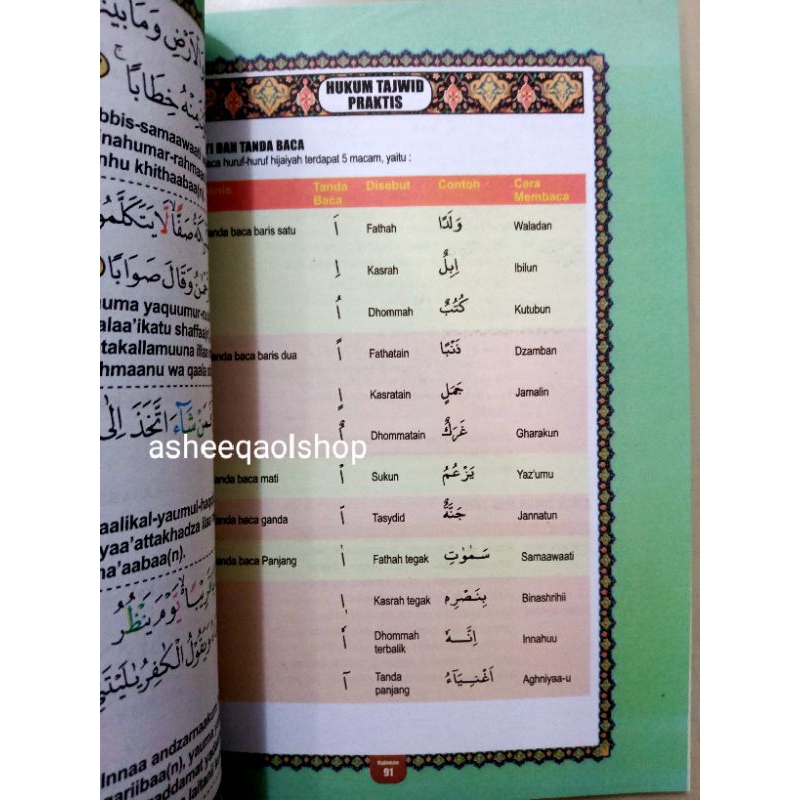 الْأَرْضِ وَمَا بَيْنَ
مِنْهُ خِطَابًا
bbis-samaawaati
nahumar-rahmaa
nhu khithaabaa(n).
صَفًّا لَا يَتَكَلَّمُو
وَقَالَ صَوَابًا
uma yaquumur-ru
alaa'ikatu shaffaa
takallamuuna illaa
hmaanu wa qaala
شَاءَ اتَّخَذَ إِلَى
aalikal-yaumul-haqq
yaa'attakhadza ilaa
na'aabaa(n).
قَرِيبًا يَوْمَ يَنْظُرُ
وَيَقُولُ الْكٰفِرُ يٰلَيْتَنِي
Innaa andzarnaakum
qariibaa(n), yauma
addamat yadaa
laitanii
HUKUM TAJWID
PRAKTIS
I DAN TANDA BACA
aca huruf-huruf hijaiyah terdapat 5 macam, yaitu :
enis Tanda Baca Disebut Contoh Cara Membaca
anda baca baris satu اَ Fathah وَلَدًا Waladan
اِ Kasrah اِبِلٌ Ibilun
اُ Dhommah كُتُبٌ Kutubun
anda baca baris dua اً Fathatain ذَنْبًا Dzamban
اٍ Kasratain جَمَلٍ Jamalin
اٌ Dhommatain غَرَكٌ Gharakun
anda baca mati اْ Sukun يَزْعُمُ Yaz'umu
anda baca ganda Tasydid جَنَّةٌ Jannatun
anda baca Panjang اٰ Fathah tegak سَمٰوٰتِ Samaawaati
Kasrah tegak بِنَصْرِهٖ Binashrihii
Dhommah terbalik اِنَّهٗ Innahuu
آ Tanda panjang اَغْنِيَآءُ Aghniyaa-u
Halaman
91
asheeqaolshop